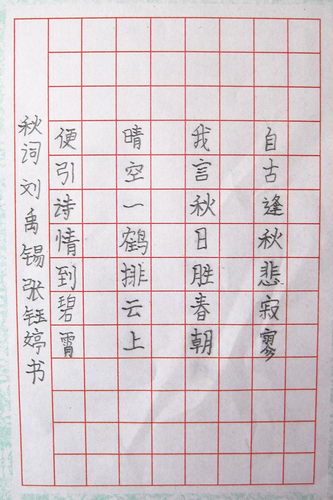 自古逢秋悲寂寥
我言秋日胜春朝
晴空一鹤排云上
便引诗情到碧霄
秋词刘禹锡张钰婷书